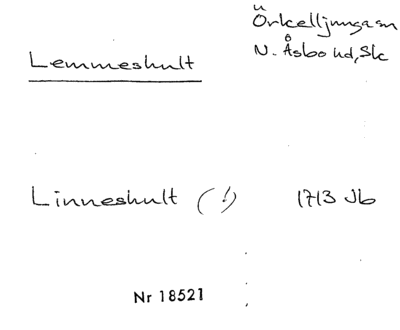 Örkelljunga sn
Lemmeshult
N. Åsbo hd, Sk
Linneshult (!) 1713 Jb
Nr 18521